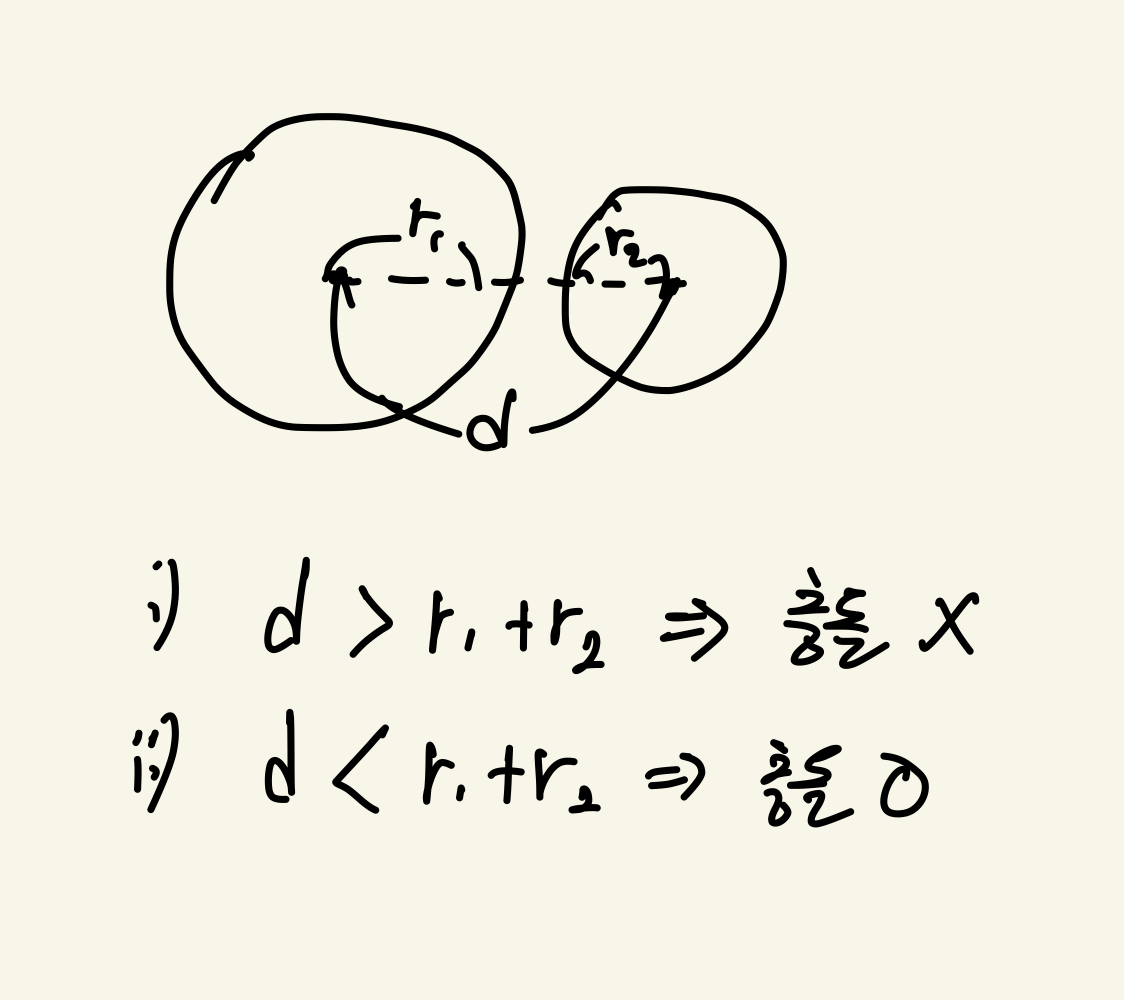 r₁
r₂
d
i) d > r₁ + r₂ ⇒ 충돌 X
ii) d < r₁ + r₂ ⇒ 충돌 O